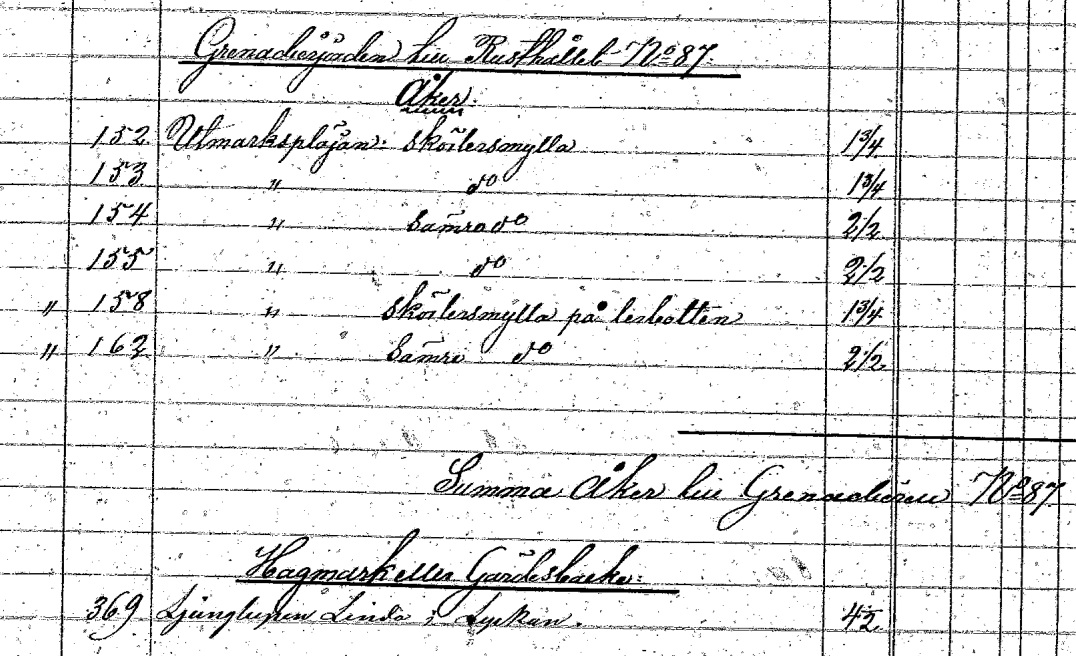 Grenadiersjorden till Rusthållet No 87.
Åker:
152 Utmarksplöjan: skörlersmylla 1 3/4
153 " do 1 3/4
154 " Sämre do 2 1/2
155 " do 2 1/2
" 158 " skörlersmylla på lerbotten 1 3/4
" 162 " Sämre do 2 1/2
Summa Åker till Grenadieren No 87
Hagmark eller Gärdesbacke:
369 Ljunglupen Linda i Lyckan. 42